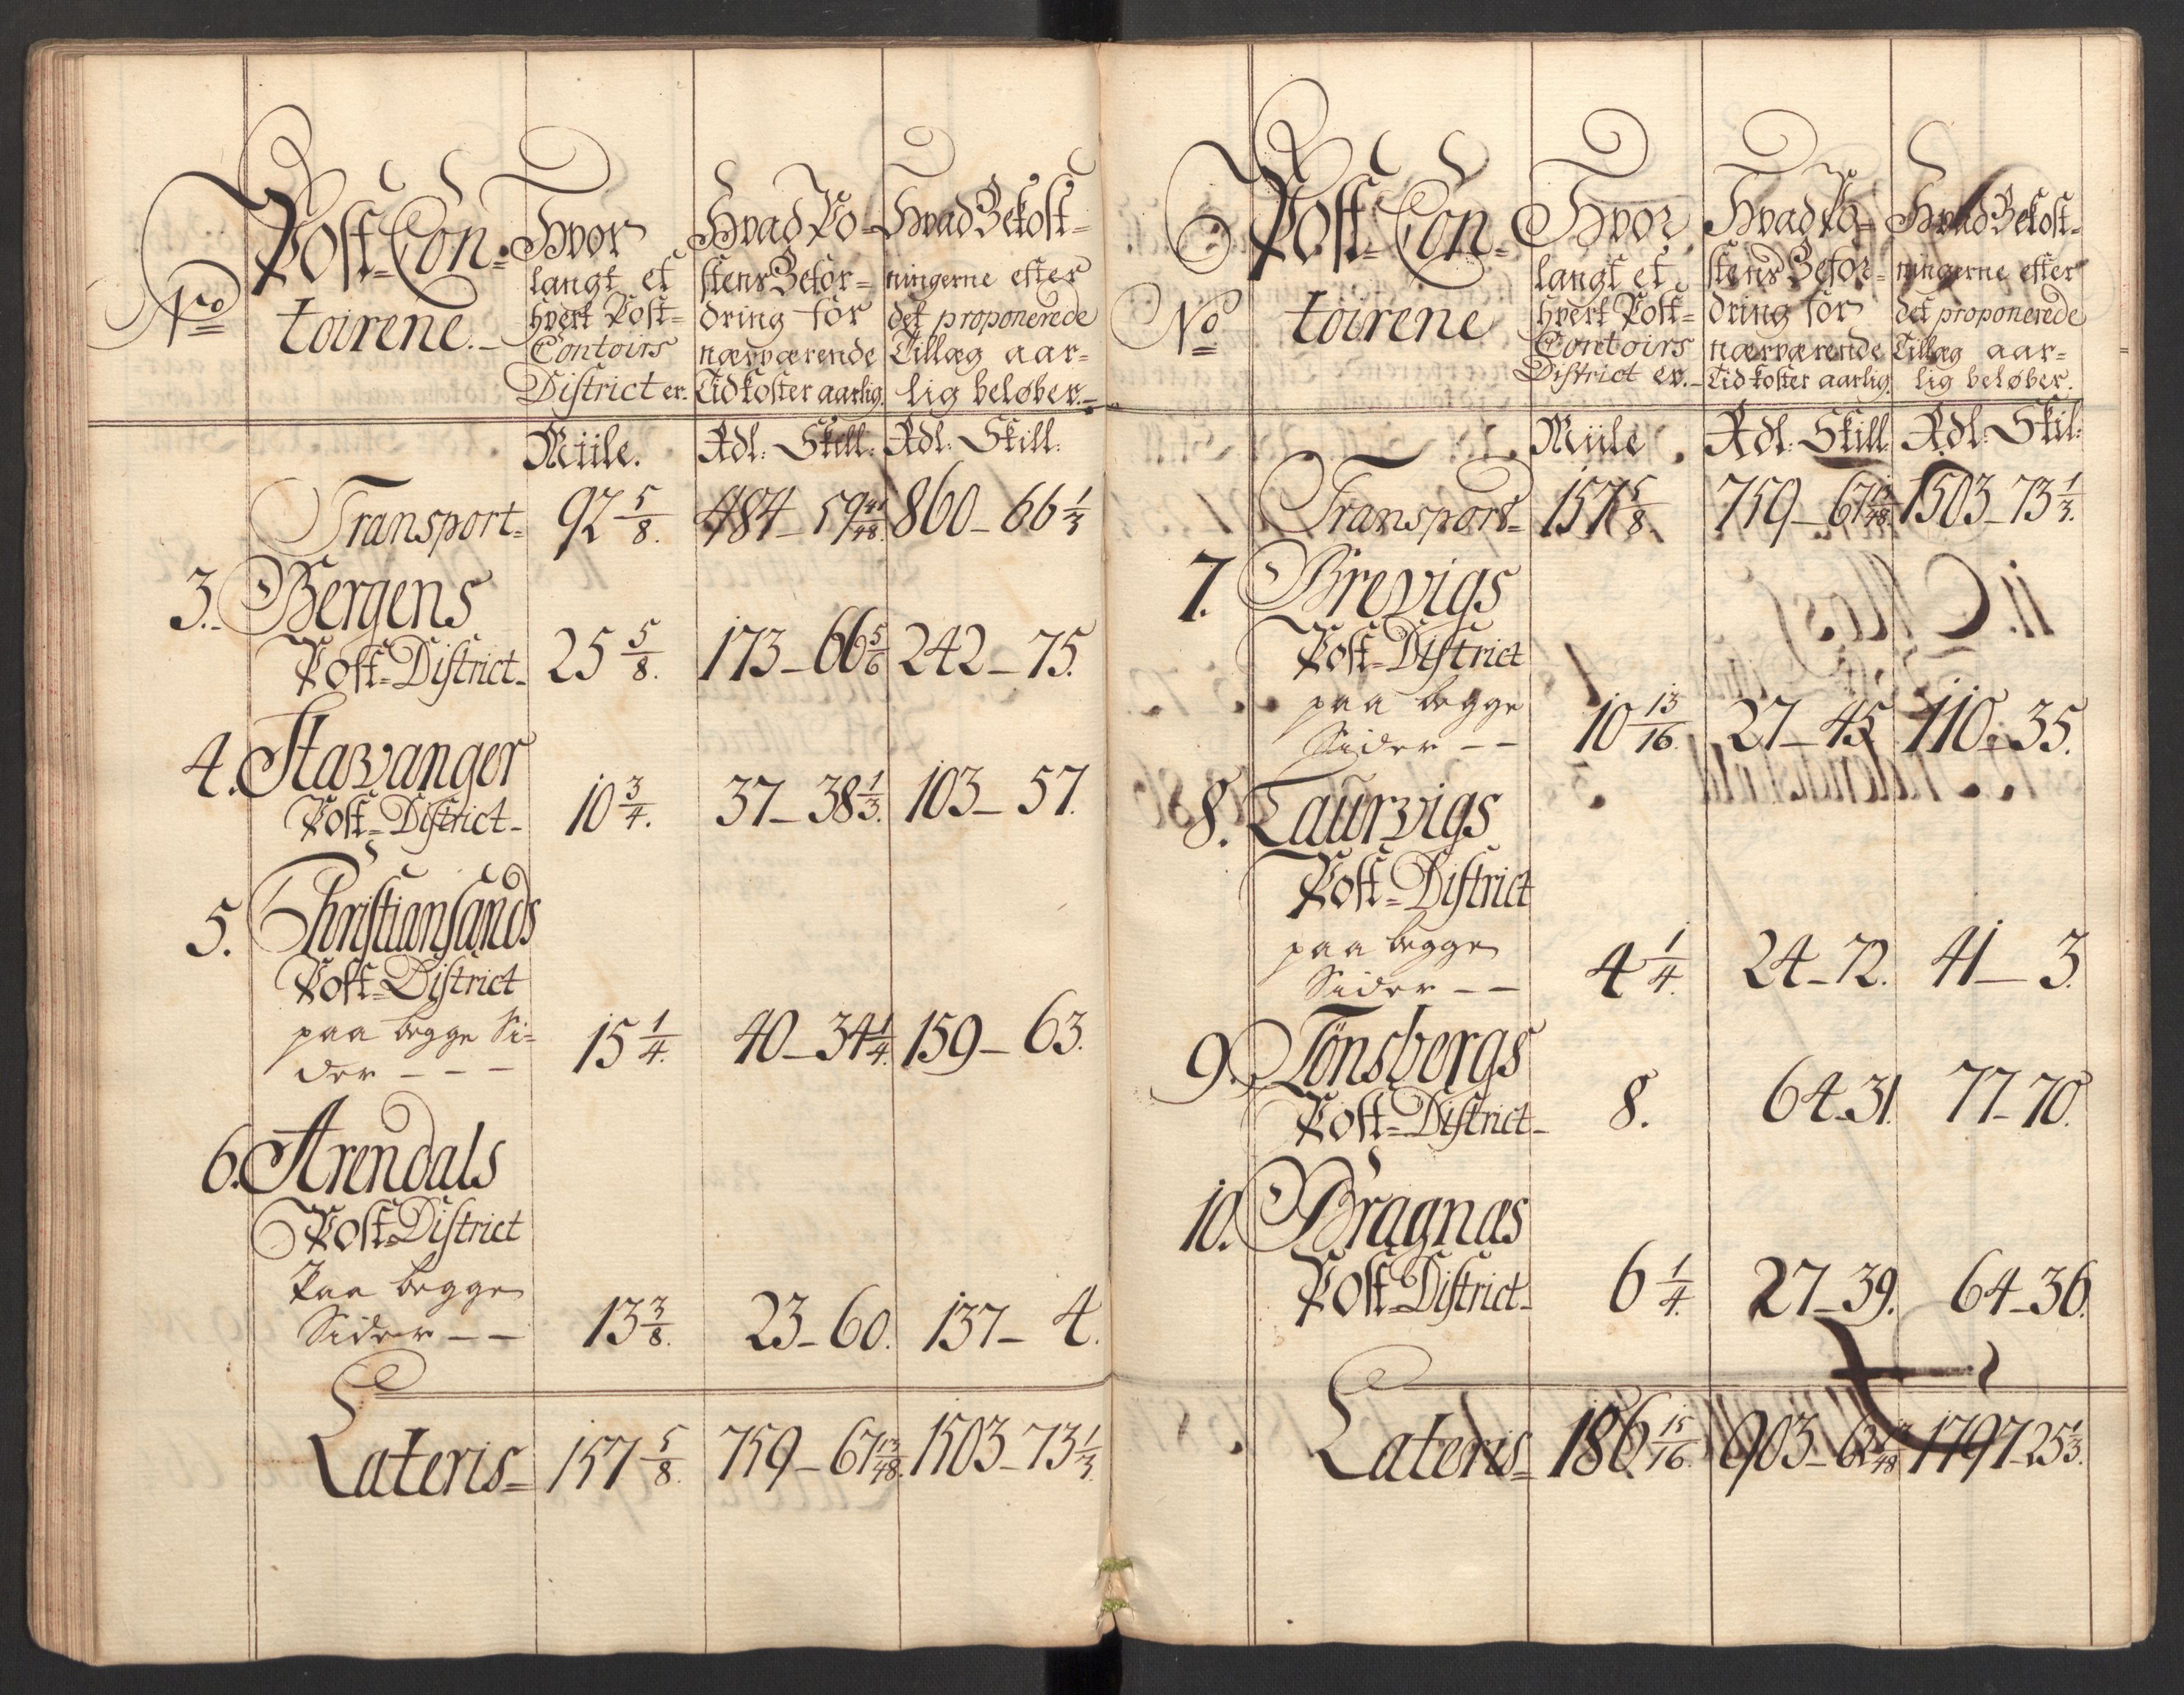 No
Post-Con-
toirene.
Hvor
langt et
hvert Post-
Contoirs
District er.
Hvad Po-
stens Befor-
dring for
nærværende
Tid koster aarlig.
Hvad Bekost-
ningerne efter
det proponerede
Tillæg aar-
lig beløber.
Miile. Rdl: Skill: Rdl: Skill:
Transport- 92 5/8. 484 - 59 41/48. 860 - 66 1/3
3. Bergens
Post-District- 25 5/8. 173 - 66 5/6 242 - 75.
4. Stavanger
Post-District- 10 3/4. 37 - 38 1/3. 103 - 57.
5. Christiansands
Post-District
paa begge Si- 15 1/4. 40 - 34 1/4. 159 - 63.
der - - -
6. Arendals
Post-District
Paa begge
Sider - - 13 3/8. 23 - 60. 137 - 4.
Lateris- 157 5/8. 759 - 67 13/48. 1503 - 73 1/3.
No
Post-Con-
toirene
Hvor
langt et
hvert Post-
Contoirs
District er.
Hvad Po-
stens Befor-
dring for
nærværende
Tid koster aarlig.
Hvad Bekost-
ningerne efter
det proponerede
Tillæg aar-
lig beløber.
Miile. Rdl: Skill: Rdl: Skil:
Transport- 157 5/8. 759 - 67 13/48. 1503 - 73 1/3.
7. Brevigs
Post-District
paa begge
Sider - - 10 13/16. 27 - 45 110 - 35.
8. Laurvigs
Post-District
paa begge
Sider - - 4 1/4. 24 - 72. 41 - 3.
9. Tønsbergs
Post-District- 8. 64 - 31. 77 - 70.
10. Bragnæs
Post-District- 6 1/4. 27 - 39. 64 - 36.
Lateris- 186 15/16. 903 - 62 13/48 1797 - 25 1/3.